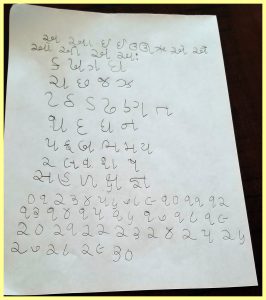 અ આ ઇ ઈ ઉ ઊ ઋ એ ઐ
ઓ ઔ અં અઃ
ક ખ ગ ઘ
ચ છ જ ઝ
ટ ઠ ડ ઢ ણ ત
થ દ ધ ન
પ ફ બ ભ મ ય
ર લ વ શ ષ
સ હ ળ ક્ષ જ્ઞ
૦ ૧ ૨ ૩ ૪ ૫ ૬ ૭ ૮ ૯ ૧૦ ૧૧ ૧૨
૧૩ ૧૪ ૧૫ ૧૬ ૧૭ ૧૮ ૧૯
૨૦ ૨૧ ૨૨ ૨૩ ૨૪ ૨૫ ૨૬
૨૭ ૨૮ ૨૯ ૩૦